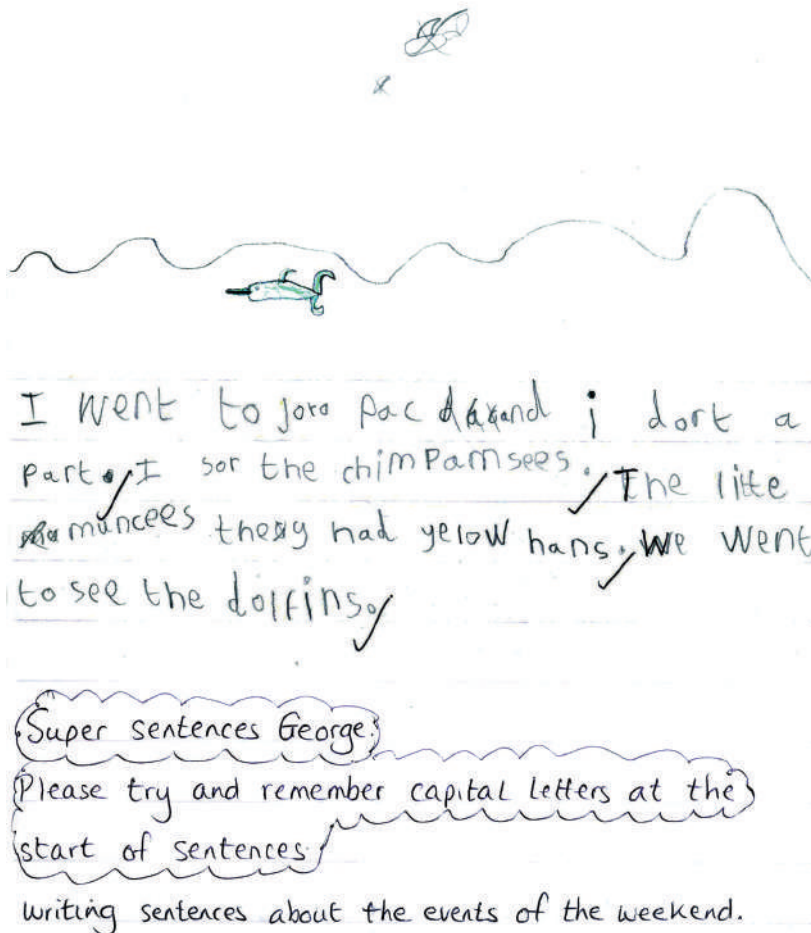 I went to joro pac and i dort a
part. I sor the chimpamsees. The litte
muncees they had yelow hans. We went
to see the dolfins.
Super sentences George.
Please try and remember capital letters at the
start of sentences
writing sentences about the events of the weekend.